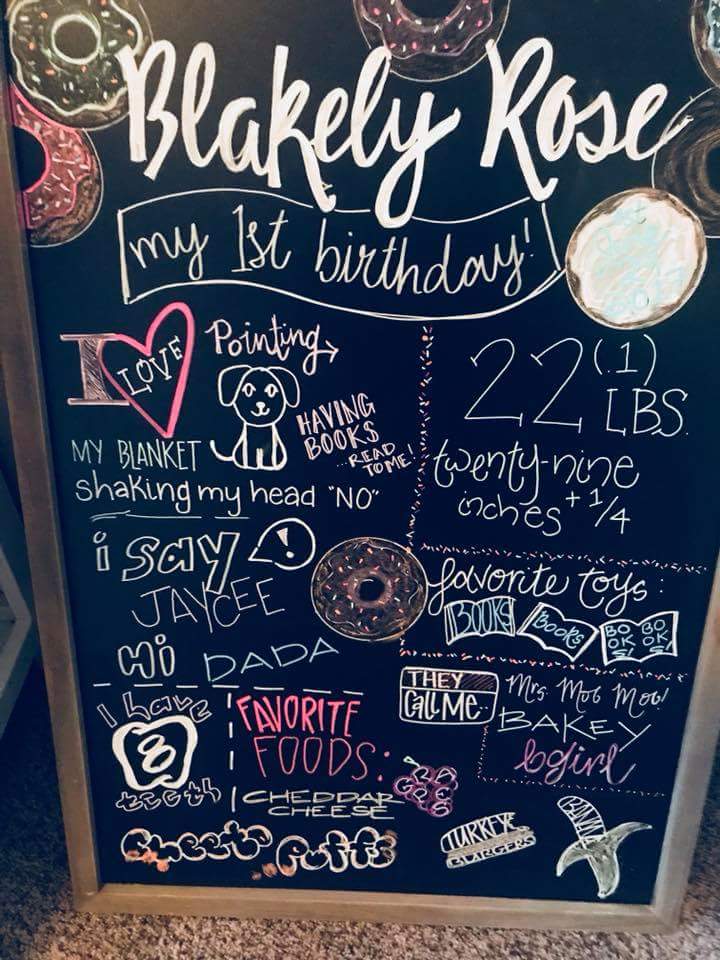 Blakely Rose
my 1st birthday!
I LOVE
Pointing
HAVING
BOOKS
...READ
TO ME!
MY BLANKET
shaking my head "NO"
22(.1)
LBS.
twenty-nine
inches + 1/4
i say !
JAYCEE
Hi DADA
favorite toys:
BOOKS
BOOKS
BO BO
OK OK
S! S!
THEY
Call Me..
Mrs. Mob Mob!
BAKEY
bgirl
I have
8
teeth
FAVORITE
FOODS:
CHEDDAR
CHEESE
GRAPES
Cheeto Puffs
TURKEY
BURGERS
BANANA